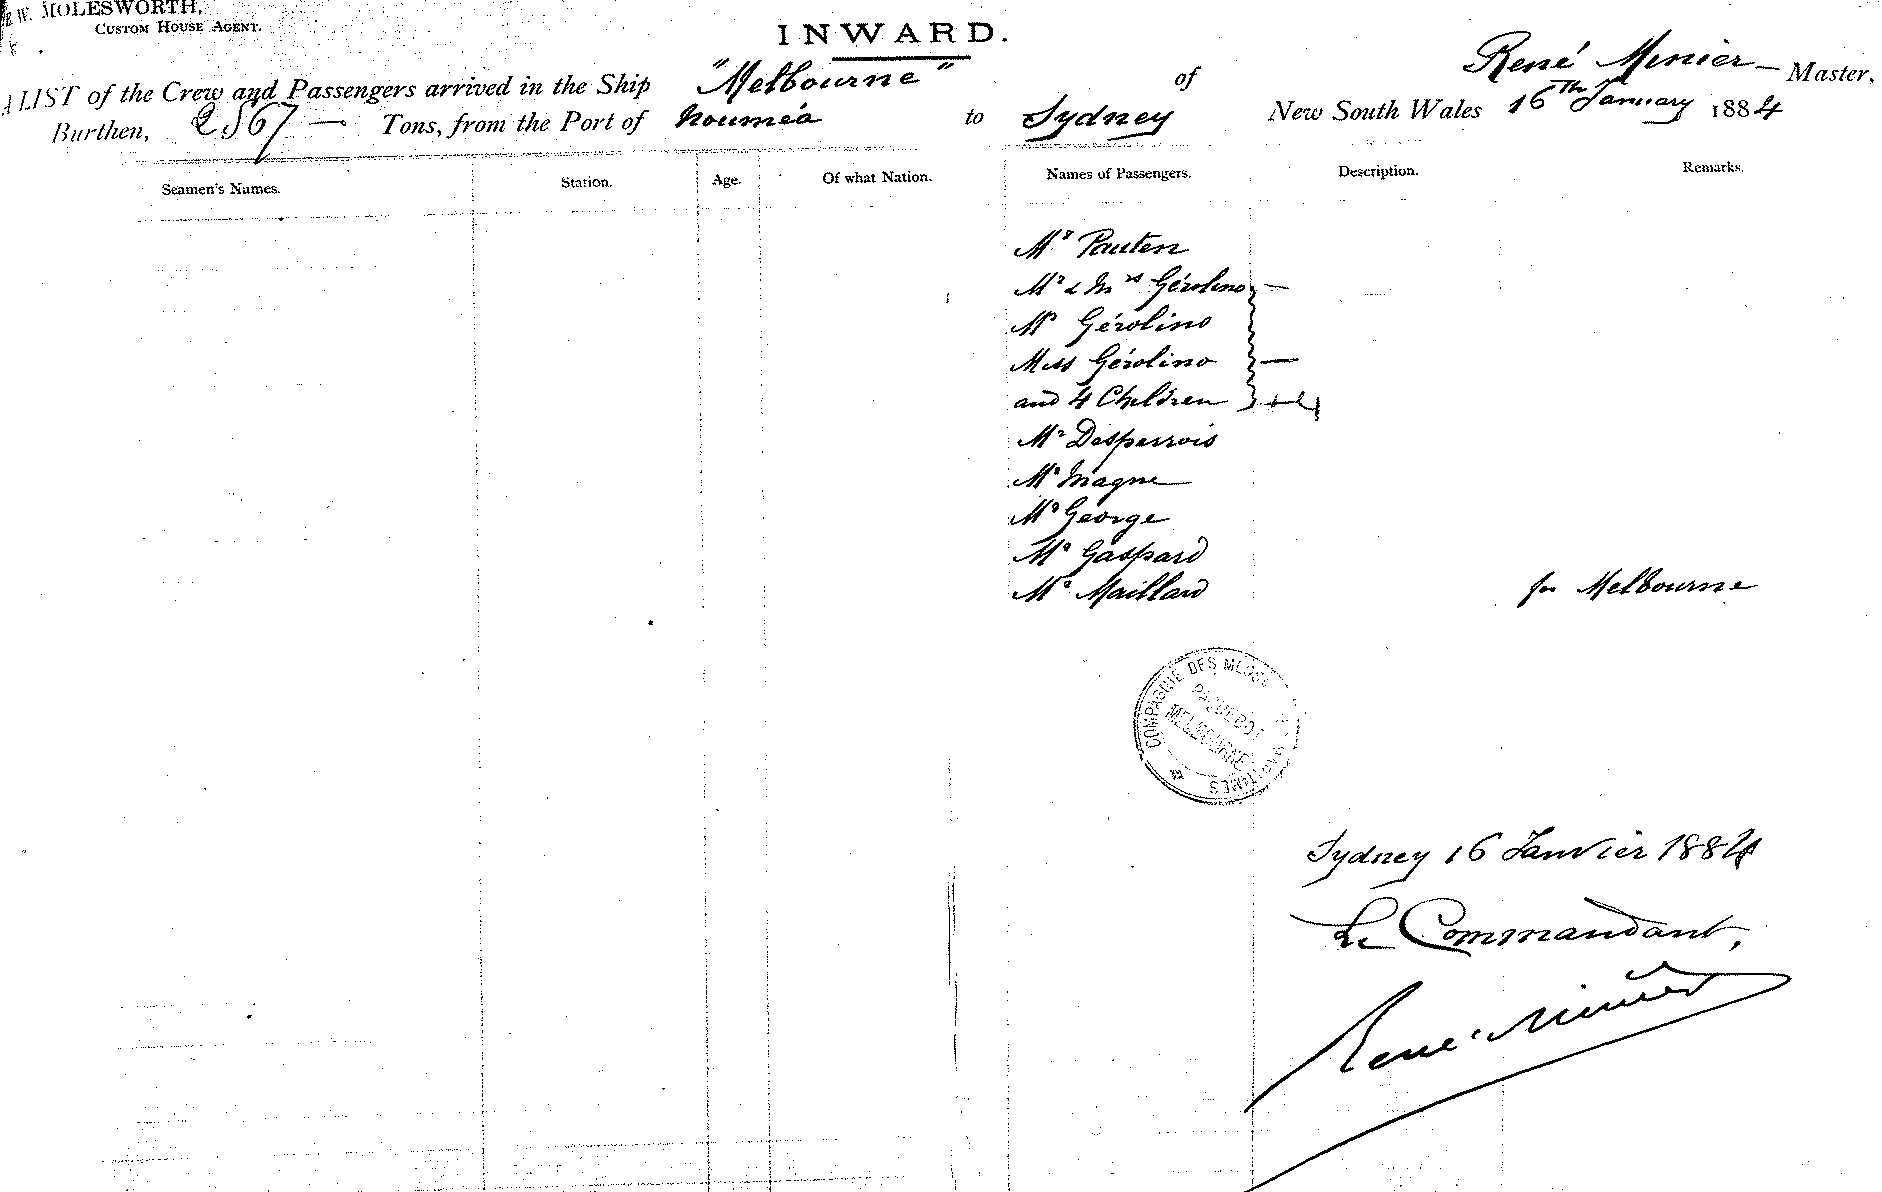 W. MOLESWORTH,
CUSTOM HOUSE AGENT.
INWARD.
A LIST of the Crew and Passengers arrived in the Ship "Melbourne" of René Minier — Master,
Burthen, 2567 — Tons, from the Port of Nouméa to Sydney New South Wales 16th January 1884
Seamen's Names. Station. Age. Of what Nation. Names of Passengers. Description. Remarks.
Mr Pauten
Mr & Mrs Gérolino —
Mr Gérolino
Miss Gérolino —
and 4 Children + 4
Mr Desperrois
Mr Magne
Mr George
Mr Gaspard
Mr Maillard for Melbourne
COMPAGNIE DES MESSAGERIES MARITIMES
PAQUEBOT
MELBOURNE
Sydney 16 Janvier 1884
Le Commandant,
René Minier